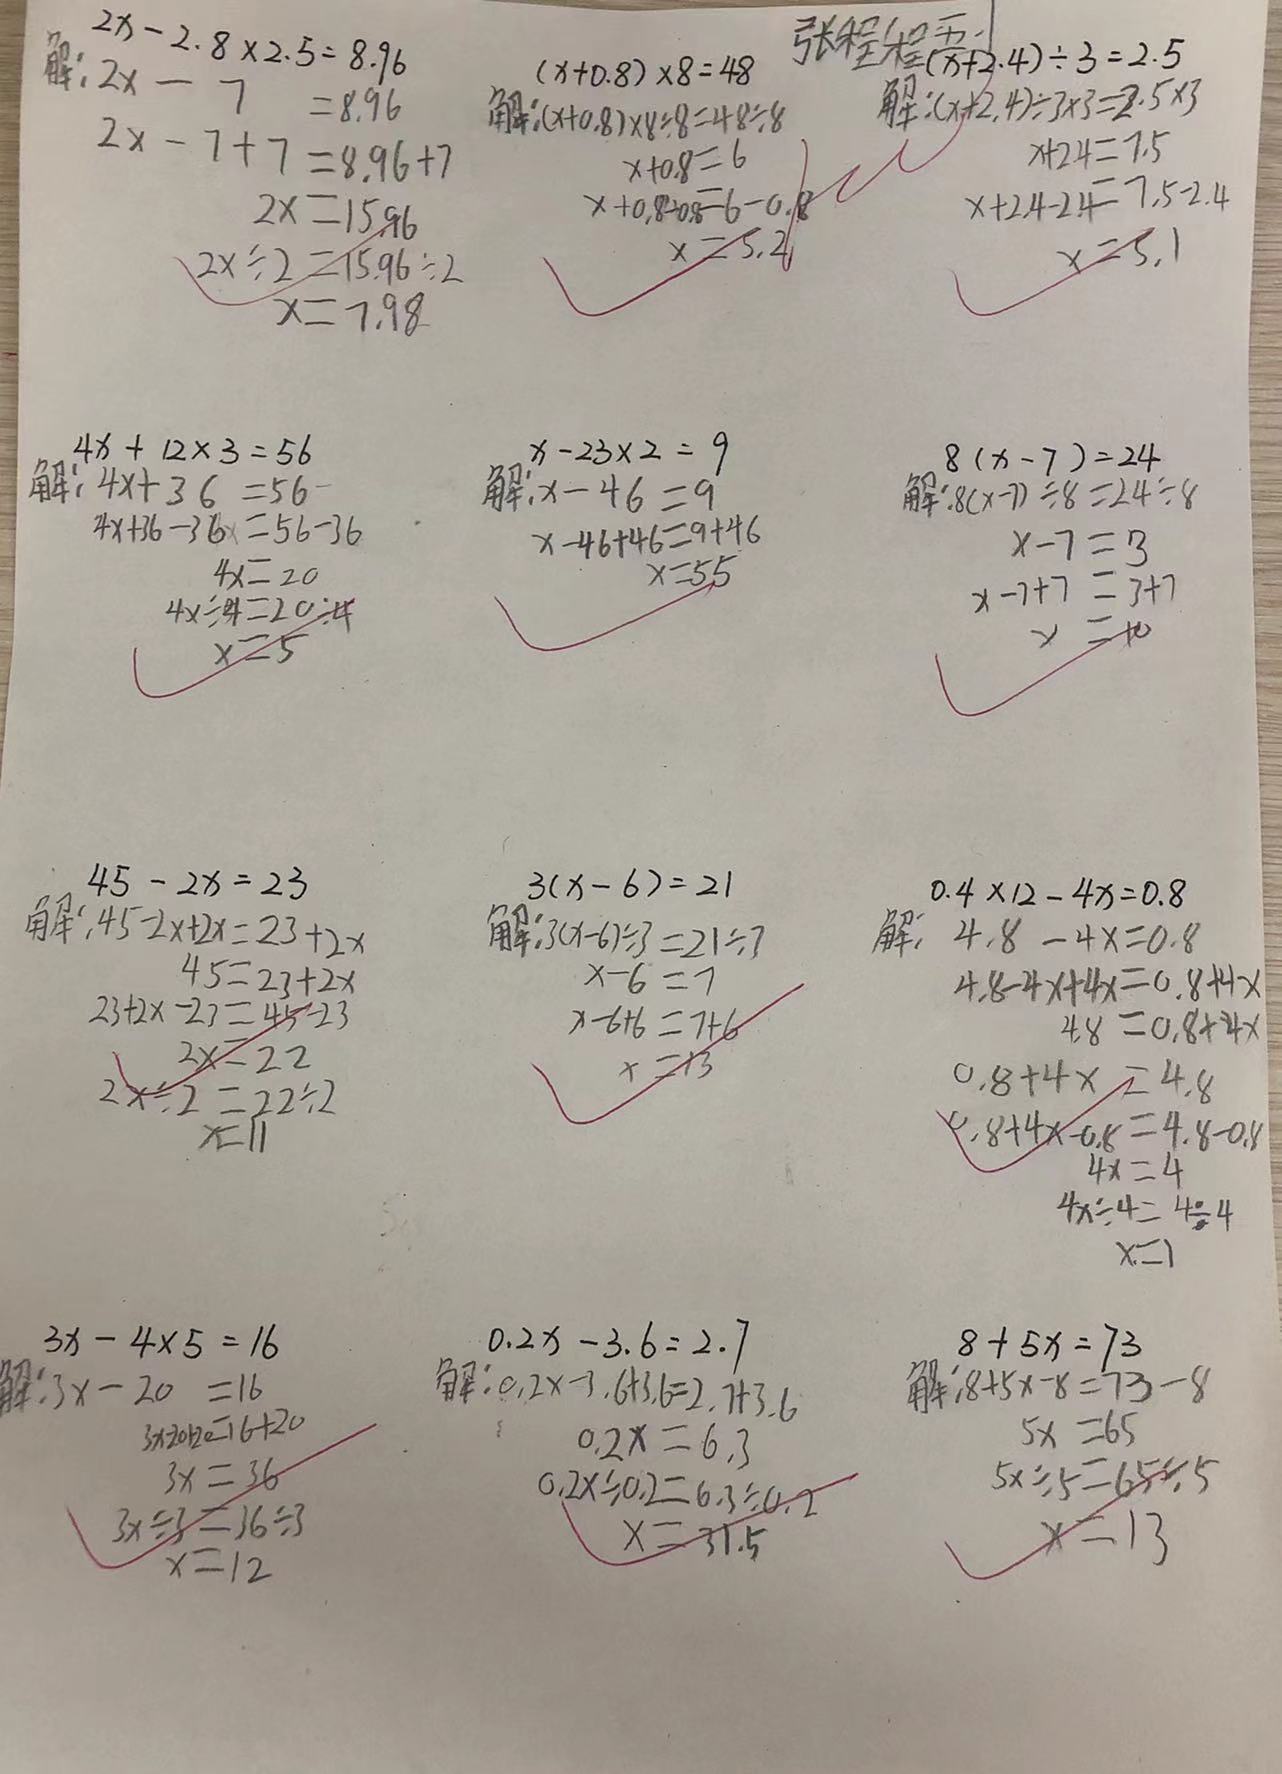 张程程
2x-2.8×2.5=8.96
解:2x-7=8.96
2x-7+7=8.96+7
2x=15.96
2x÷2=15.96÷2
x=7.98
(x+0.8)×8=48
解:(x+0.8)×8÷8=48÷8
x+0.8=6
x+0.8-0.8=6-0.8
x=5.2
(x+2.4)÷3=2.5
解:(x+2.4)÷3×3=2.5×3
x+2.4=7.5
x+2.4-2.4=7.5-2.4
x=5.1
4x+12×3=56
解:4x+36=56
4x+36-36=56-36
4x=20
4x÷4=20÷4
x=5
x-23×2=9
解:x-46=9
x-46+46=9+46
x=55
8(x-7)=24
解:8(x-7)÷8=24÷8
x-7=3
x-7+7=3+7
x=10
45-2x=23
解:45-2x+2x=23+2x
45=23+2x
23+2x-23=45-23
2x=22
2x÷2=22÷2
x=11
3(x-6)=21
解:3(x-6)÷3=21÷3
x-6=7
x-6+6=7+6
x=13
0.4×12-4x=0.8
解:4.8-4x=0.8
4.8-4x+4x=0.8+4x
4.8=0.8+4x
0.8+4x=4.8
0.8+4x-0.8=4.8-0.8
4x=4
4x÷4=4÷4
x=1
3x-4×5=16
解:3x-20=16
3x-20+20=16+20
3x=36
3x÷3=36÷3
x=12
0.2x-3.6=2.7
解:0.2x-3.6+3.6=2.7+3.6
0.2x=6.3
0.2x÷0.2=6.3÷0.2
x=31.5
8+5x=73
解:8+5x-8=73-8
5x=65
5x÷5=65÷5
x=13